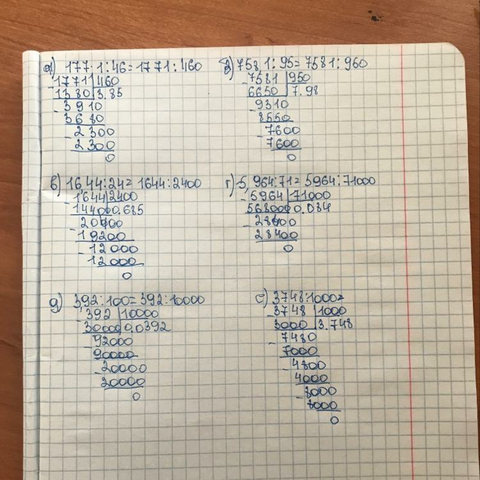 а) 177.1:46=1771:460
1771 460
1380 3.85
3910
3680
2300
2300
0
б) 758,1:95=7581:960
7581 950
6650 7.98
9310
8550
7600
7600
0
в) 16,44:24=1644:2400
1644 2400
14400 0.685
20400
19200
12000
12000
0
г) 5,964:71=5964:71000
5964 71000
568000 0.084
28400
28400
0
д) 392:100=392:10000
392 10000
30000 0,0392
92000
90000
20000
20000
0
е) 3748:1000=
3748 1000
3000 3.748
7480
7000
4800
4000
8000
8000
0